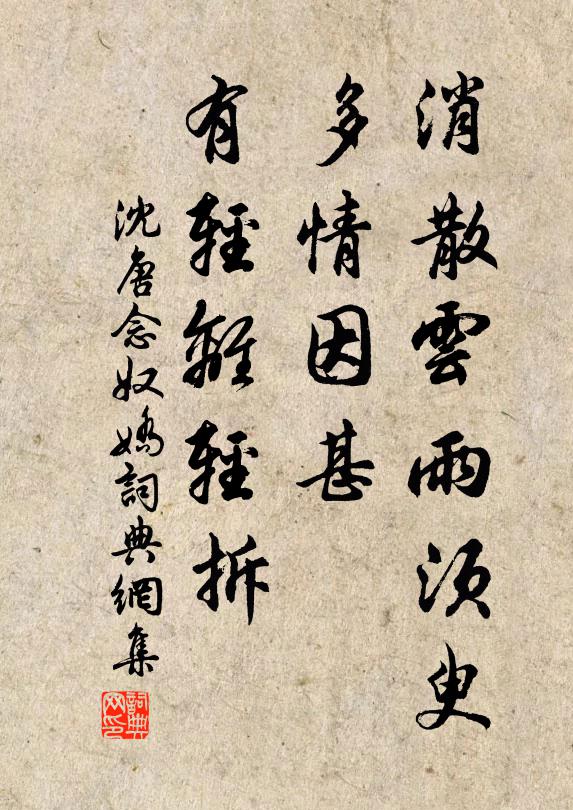 消散雲雨須臾
多情因甚
有輕離輕拆
沈唐念奴嬌詞典網集
詞典
网印